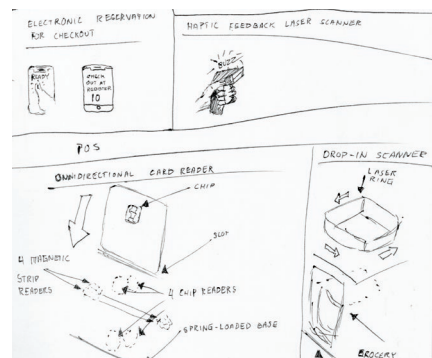 ELECTRONIC RESERVATION
FOR CHECKOUT
READY
CHECK
OUT AT
REGISTER
10
HAPTIC FEEDBACK LASER SCANNER
BUZZ
POS
OMNIDIRECTIONAL CARD READER
CHIP
SLOT
4 MAGNETIC
STRIP
READERS
4 CHIP READERS
SPRING-LOADED BASE
DROP-IN SCANNER
LASER
RING
GROCERY